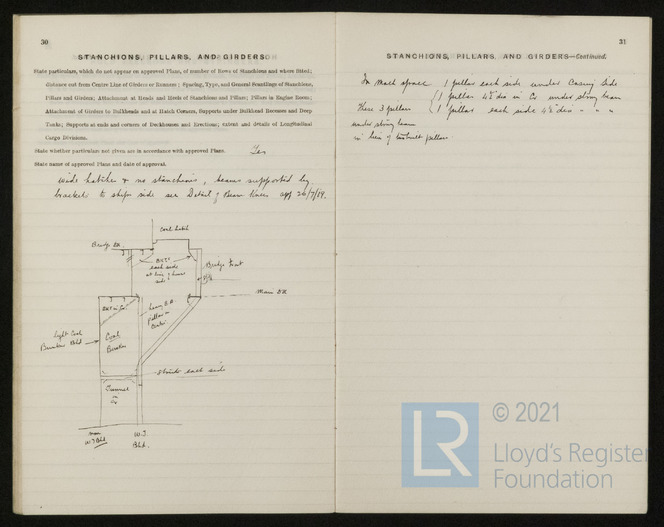 30
STANCHIONS, PILLARS, AND GIRDERS.
State particulars, which do not appear on approved Plans, of number of Rows of Stanchions and where fitted;
distance out from Centre Line of Girders or Runners; Spacing, Type, and General Scantlings of Stanchions,
Pillars and Girders; Attachment at Heads and Heels of Stanchions and Pillars; Pillars in Engine Room;
Attachment of Girders to Bulkheads and at Hatch Corners, Supports under Bulkhead Recesses and Deep
Tanks; Supports at ends and corners of Deckhouses and Erections; extent and details of Longitudinal
Cargo Divisions.
State whether particulars not given are in accordance with approved Plans. Yes
State name of approved Plans and date of approval.
wide hatches & no stanchions, beams supported by
brackets to ships side see Detail of Beam Knees app 26/7/19.
Coal hatch
Bridge Dk
each side
at line of
side
Bridge front
Main Dk
Light Coal
Bunker Blkd
Coal
Bunker
Pillar in
Centre
Stands each side
Tunnel
W.T. Blkd
W.T.
Blkd.
31
STANCHIONS, PILLARS, AND GIRDERS—Continued.
In mach space 1 pillar each side under Casing Side
1 pillar 4½ dia in Co under strong beam
These 3 pillars 1 pillar each side 4½ dia " " "
under strong beam
in lieu of pillars
© 2021
LR
Lloyd's Register
Foundation